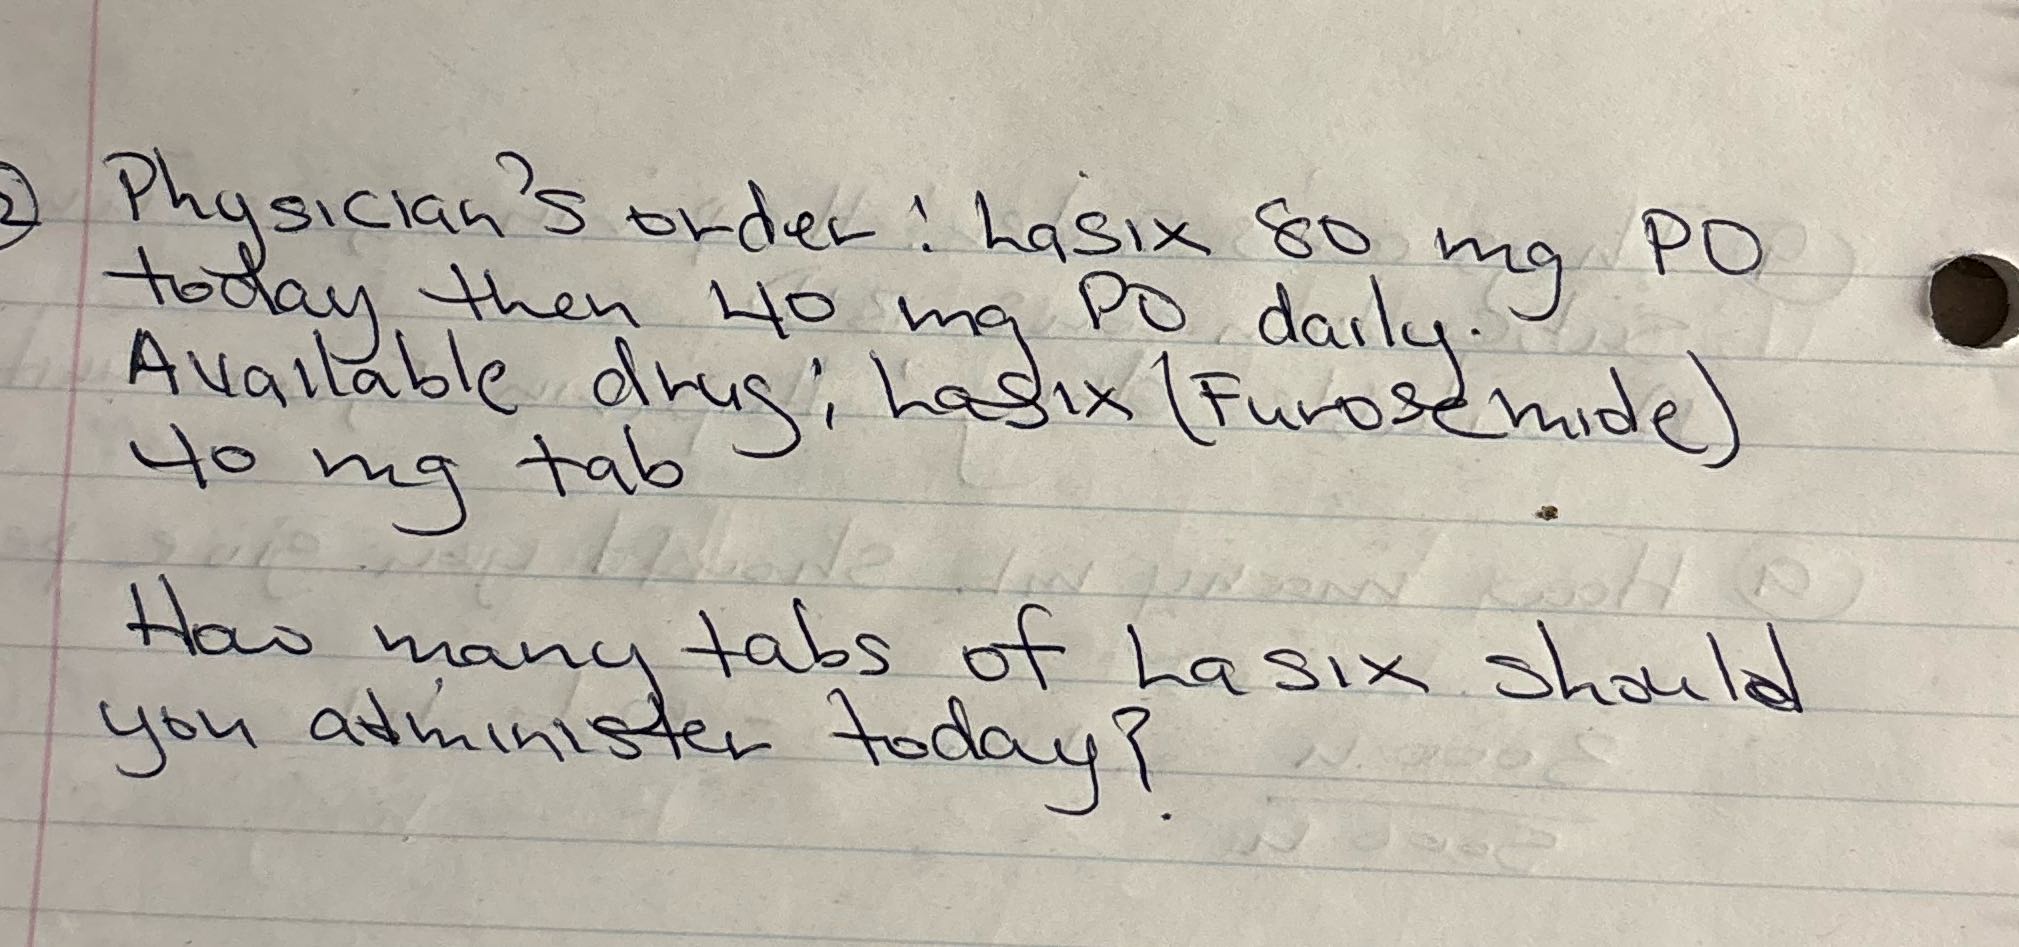 2 Physician's order: Lasix 80 mg PO
today then 40 mg PO daily.
Available drug: Lasix (Furosemide)
40 mg tab
How many tabs of Lasix should
you administer today?